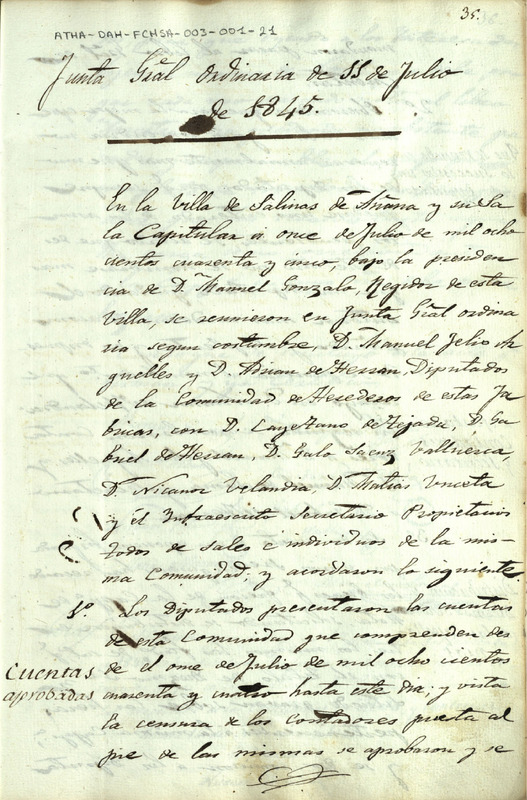 35.
ATHA-DAH-FCHSA-003-001-21
Junta Gral Ordinaria de 11 de Julio
de 1845.
En la villa de Salinas de Anana y su Sa
la Capitular á once de Julio de mil ocho
cientos cuarenta y cinco, bajo la presiden
cia de D. Manuel Gonzalo, Regidor de esta
villa, se reunieron en Junta Gral ordina
ria segun costumbre, D. Manuel Felio Ar
guelles y D. de Herran, Diputados
de la Comunidad de Herederos de estas Fa
bricas, con D. Cayetano de Tejada, D. Ga
briel de Herran, D. Galo Saenz Valluerca,
D. Nicanor Velandia, D. Matias Unceta
y el Infraescrito Secretario Propietarios
todos de sales e individuos de la mis-
ma Comunidad; y acordaron lo siguiente
1º. Los Diputados presentaron las cuentas
de esta Comunidad que comprenden des
Cuentas
aprobadas
de el once de Julio de mil ocho cientos
cuarenta y cuatro hasta este dia; y vista
la censura de los contadores puesta al
pie de las mismas se aprobaron y se